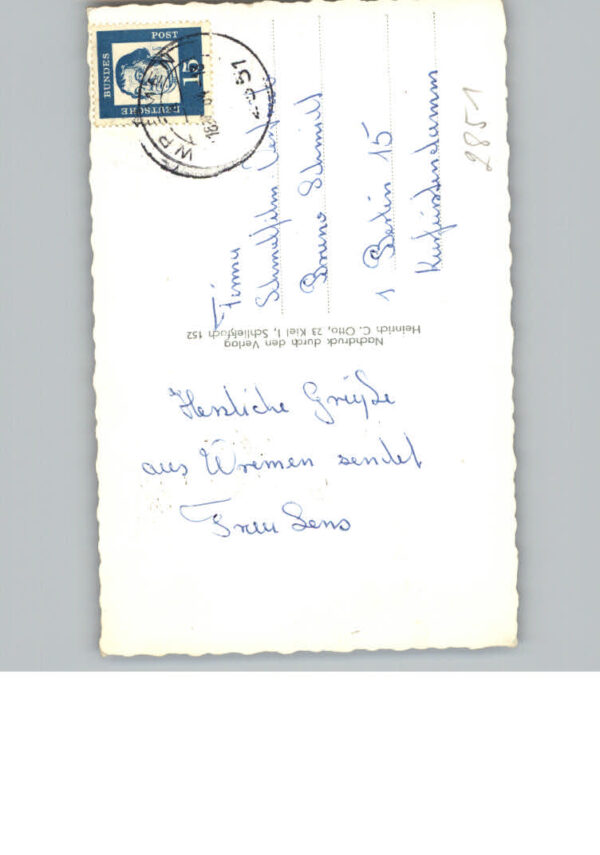 DEUTSCHE
BUNDES
POST
15
WREMEN
51
2851
Firma
Schmalfilm
Bruno Schmidt
1 Berlin 15
Kurfürstendamm
Nachdruck durch den Verlag
Heinrich C. Otto, 23 Kiel 1, Schließfach 152
Herzliche Grüße
aus Wremen sendet
Frau Lens